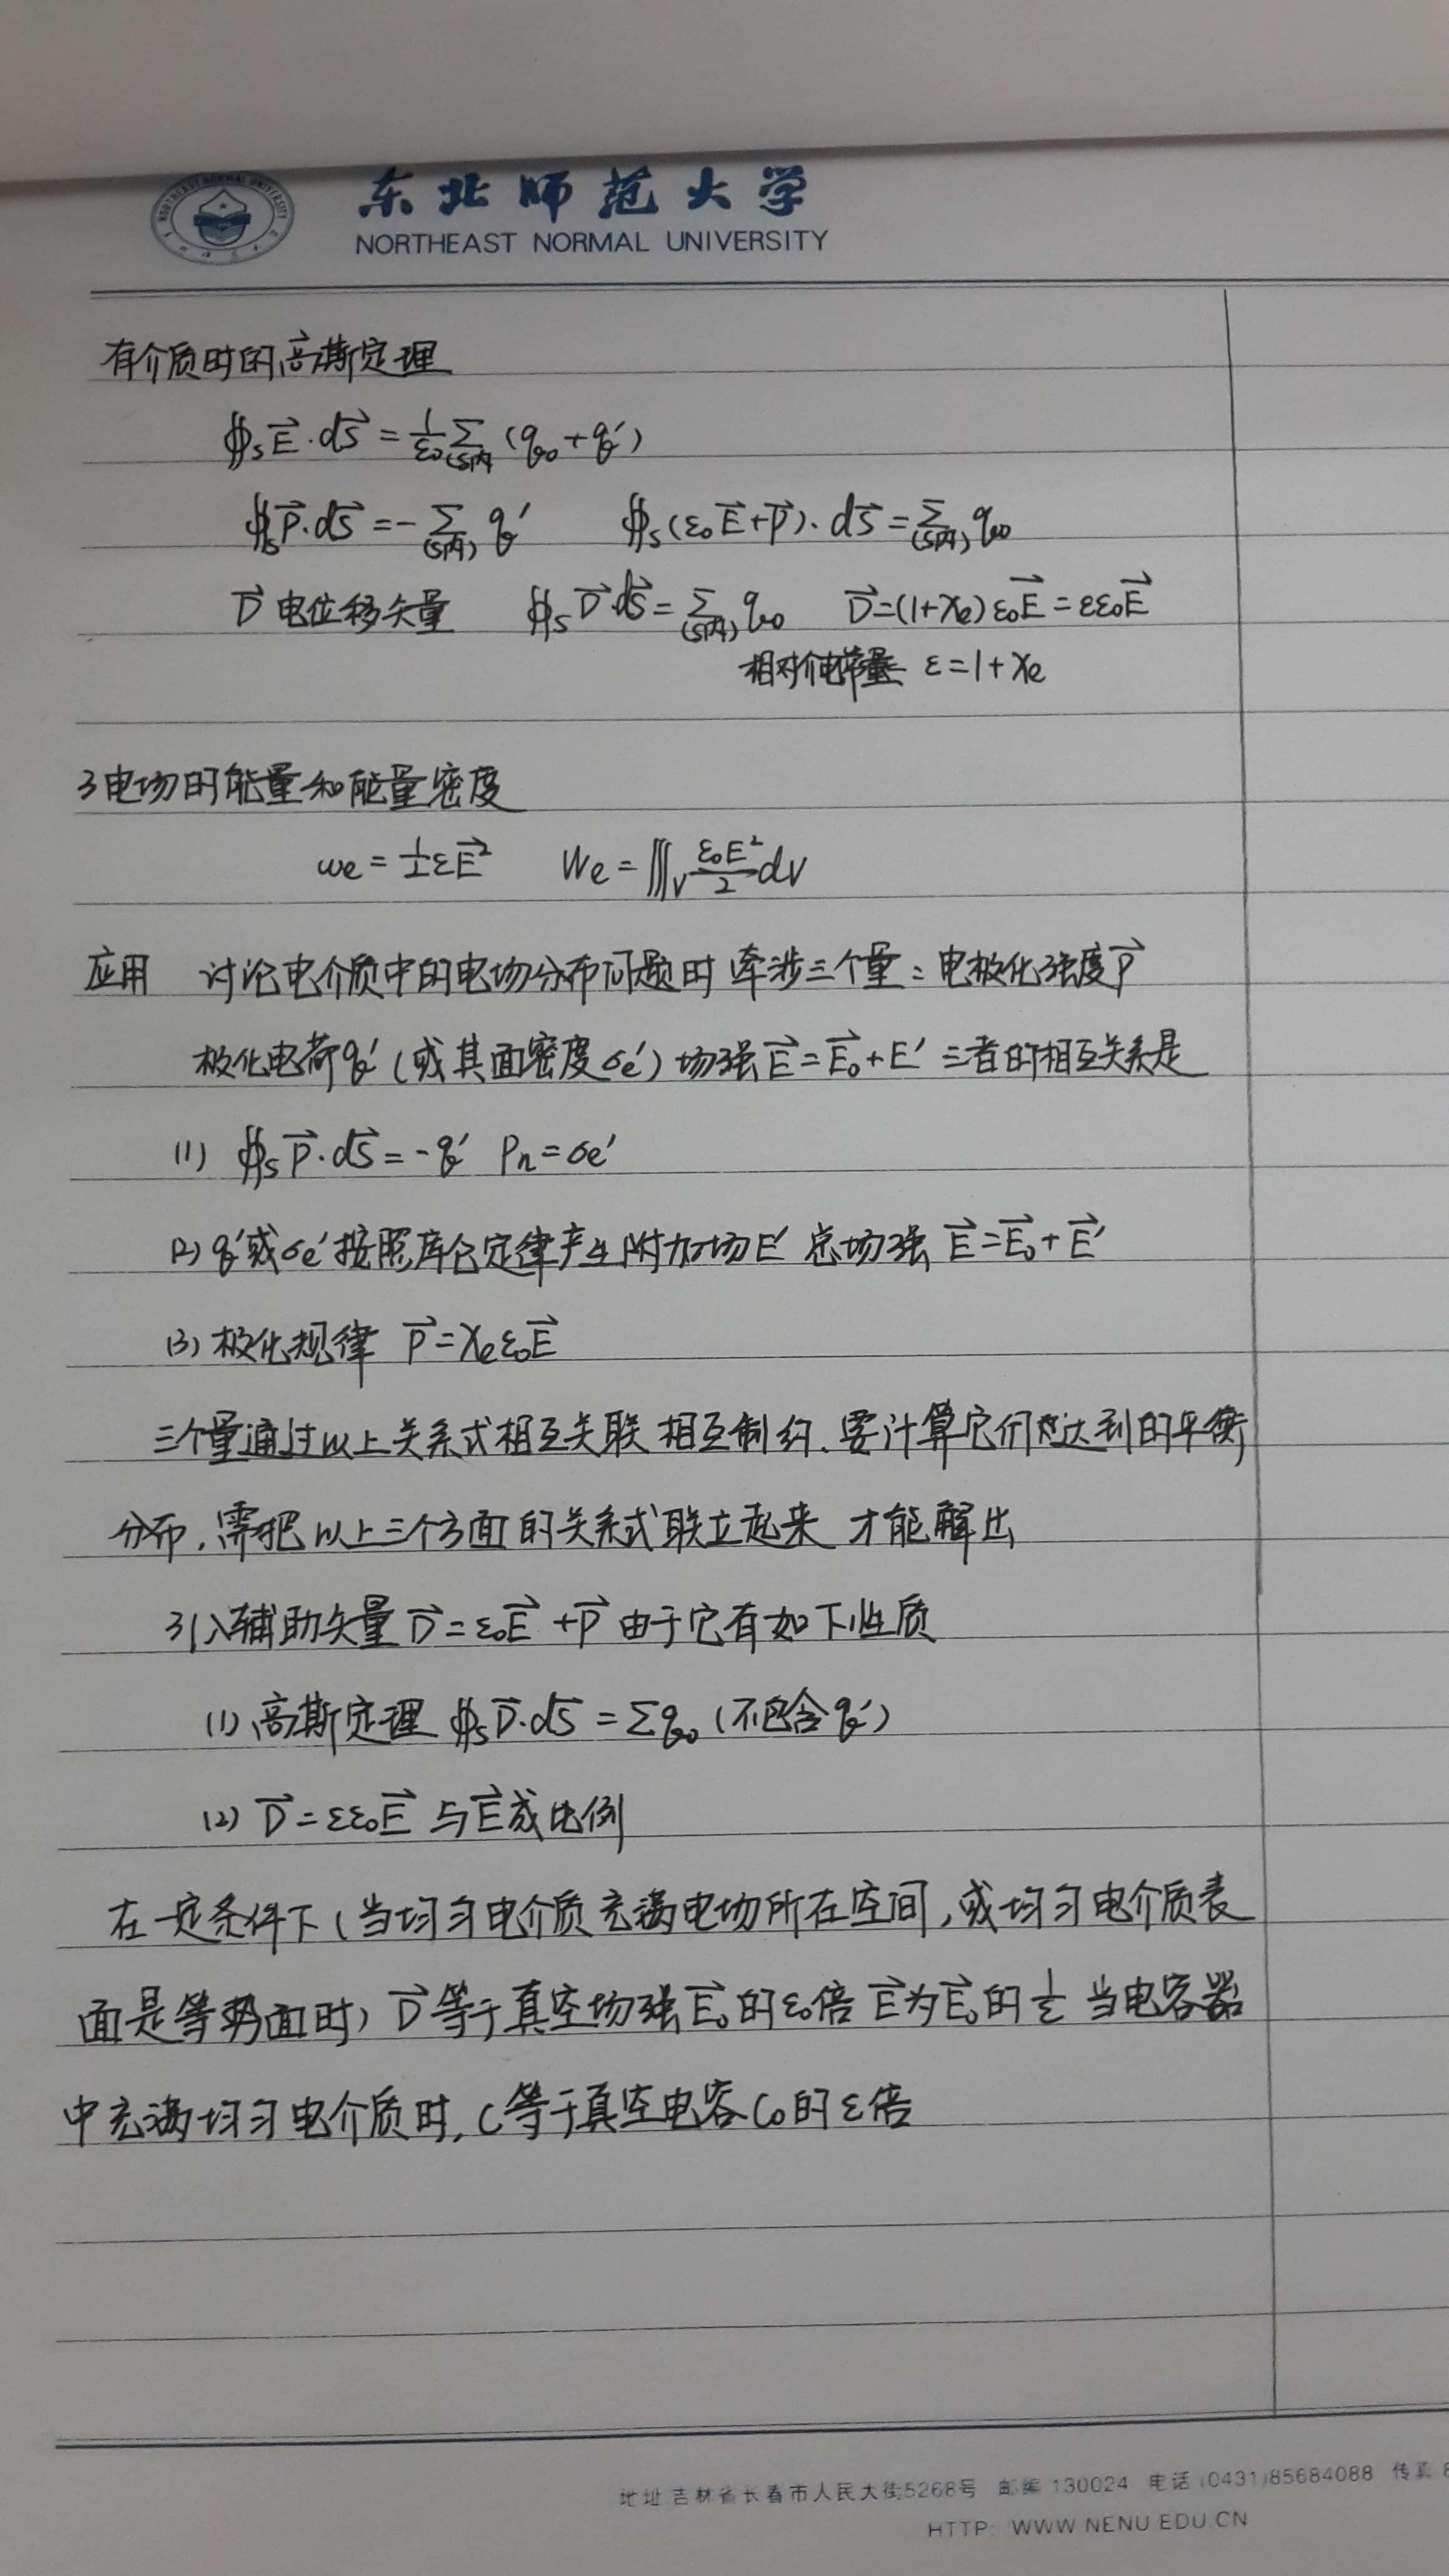 东北师范大学
NORTHEAST NORMAL UNIVERSITY
有介质时的高斯定理
∯s E⃗·dS⃗ = 1/ε₀ Σ(S内) (q₀+q′)
∯s P⃗·dS⃗ = -Σ(S内) q′  ∯s (ε₀E⃗+P⃗)·dS⃗ = Σ(S内) q₀
D⃗ 电位移矢量  ∯s D⃗·dS⃗ = Σ(S内) q₀  D⃗=(1+χe)ε₀E⃗=εε₀E⃗
相对介电常量 ε=1+χe
3电场的能量和能量密度
ωe = ½εE⃗²  We = ∭v ε₀E²/2 dV
应用 讨论电介质中的电场分布问题时 牵涉三个量:电极化强度P⃗
极化电荷q′(或其面密度σe′) 场强E⃗=E⃗₀+E′ 三者的相互关系是
(1) ∯s P⃗·dS⃗ = -q′  Pn=σe′
(2) q′或σe′按照库仑定律产生附加场E′ 总场强 E⃗=E⃗₀+E⃗′
(3) 极化规律 P⃗=χeε₀E⃗
三个量通过以上关系式相互关联 相互制约、要计算它们达到的平衡
分布,需把以上三个方面的关系式联立起来 才能解出
引入辅助矢量D⃗=ε₀E⃗+P⃗ 由于它有如下性质
(1)高斯定理 ∯s D⃗·dS⃗ = Σq₀ (不包含q′)
(2) D⃗=εε₀E⃗ 与E⃗成比例
在一定条件下(当均匀电介质充满电场所在空间,或均匀电介质表
面是等势面时) D⃗等于真空场强E⃗₀的ε₀倍 E⃗为E⃗₀的1/ε 当电容器
中充满均匀电介质时,C等于真空电容C₀的ε倍
地址 吉林省长春市人民大街5268号 邮编 130024 电话 (0431)85684088 传真
HTTP: WWW.NENU.EDU.CN